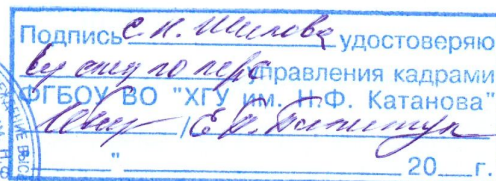 Подпись С.Н. Шилова удостоверяю
Вед спец по перс управления кадрами
ФГБОУ ВО "ХГУ им. Н.Ф. Катанова"
/
" 20 г.